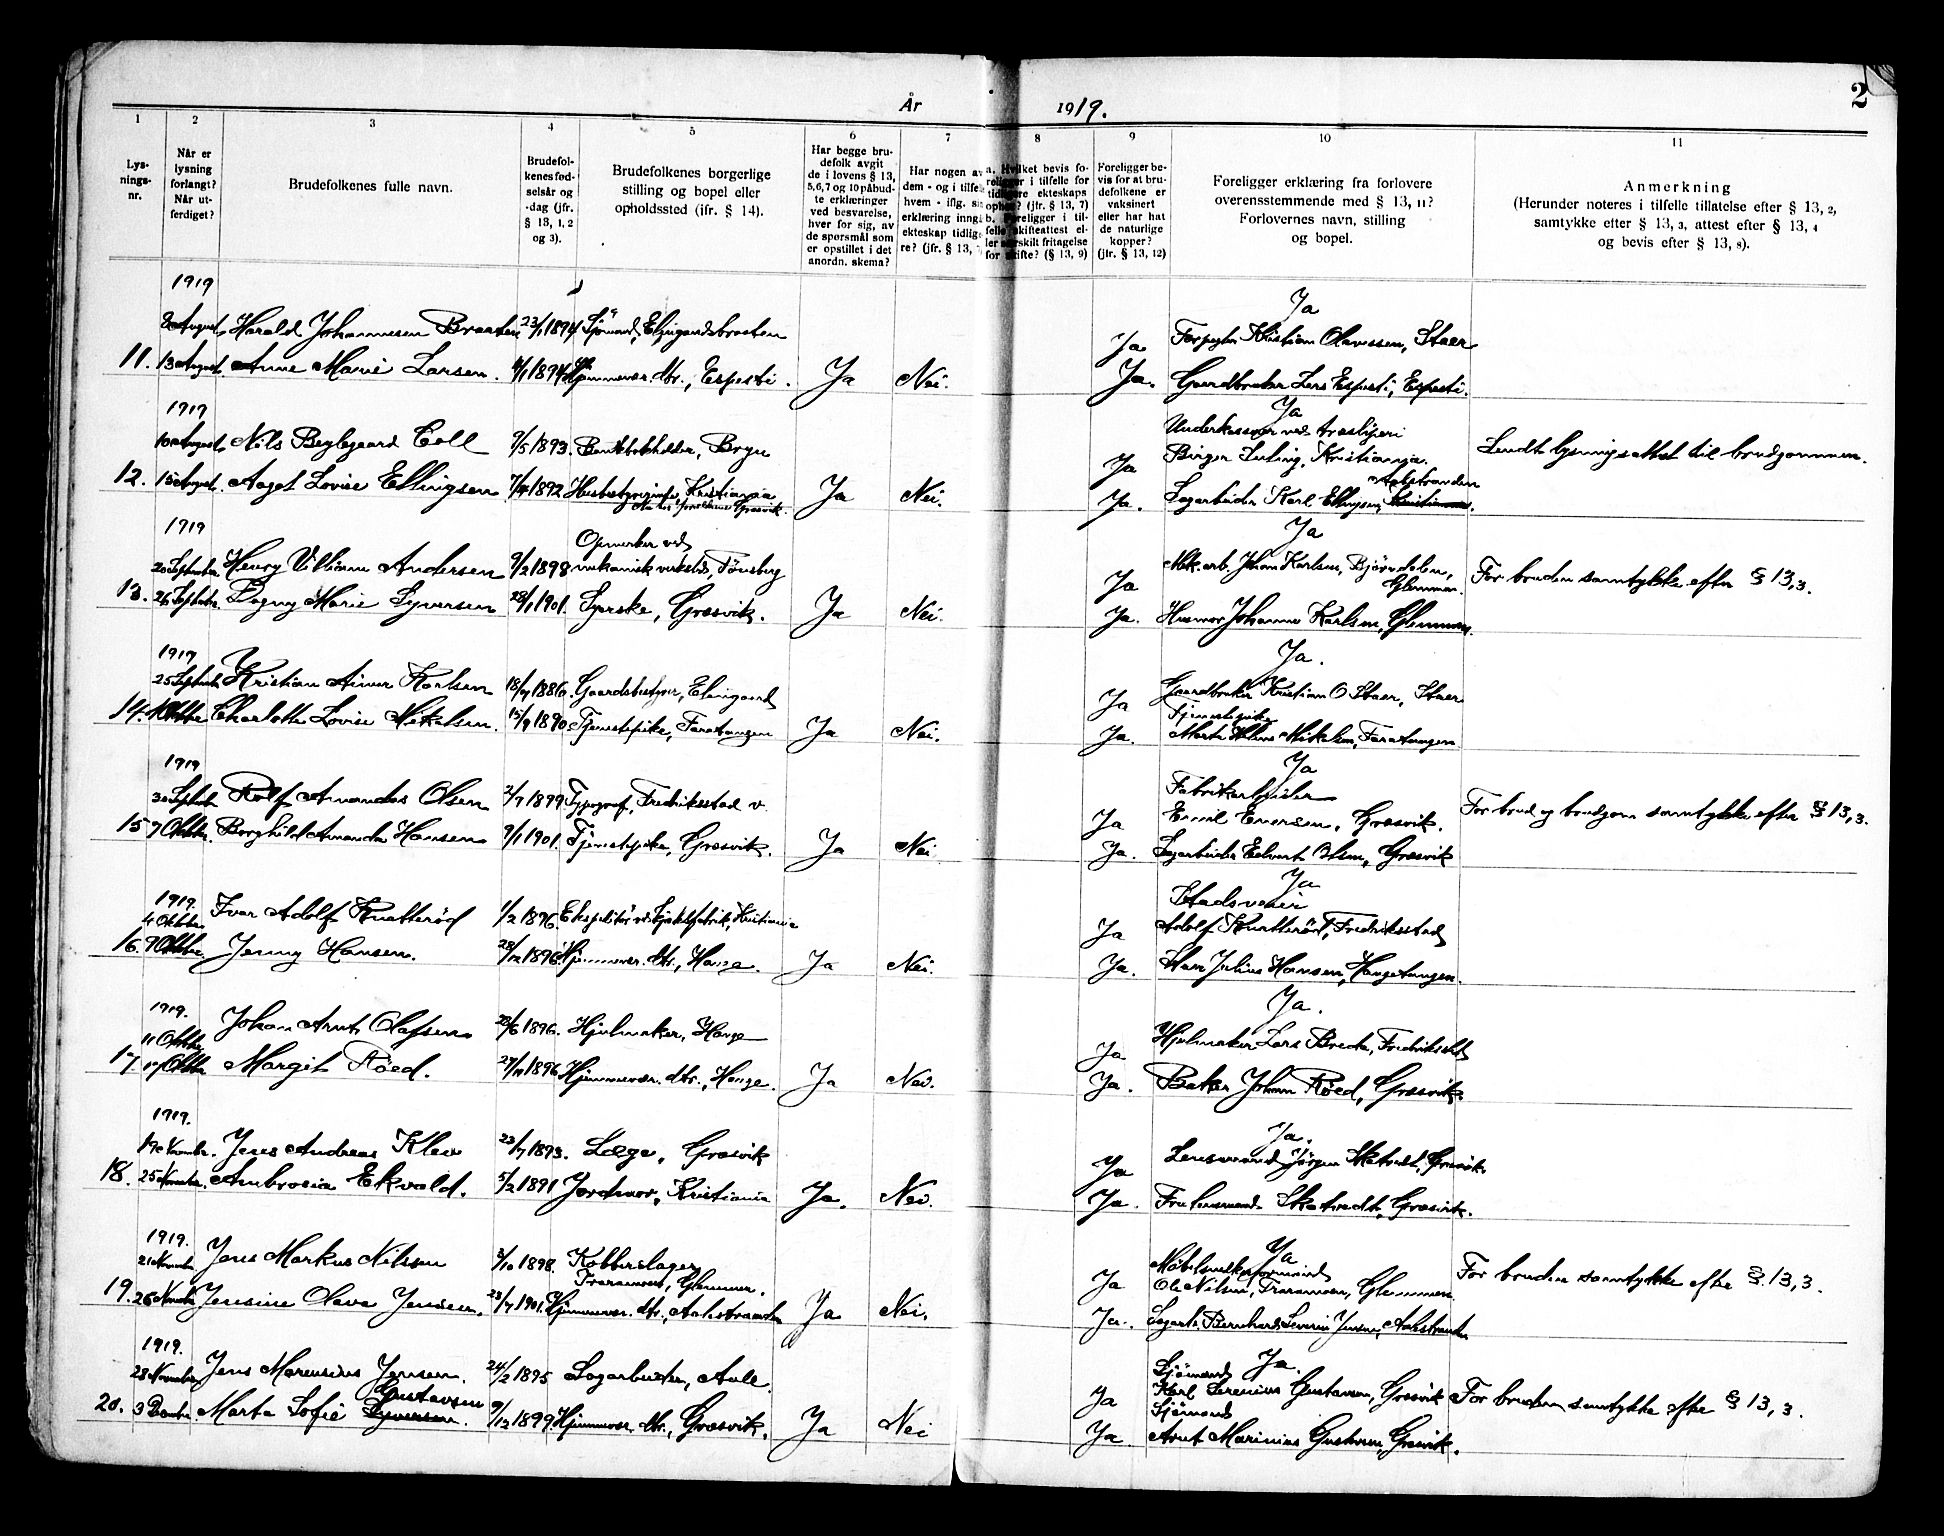 2
År 1919.
1 2 3 4 5 6 7 8 9 10 11
Lys-
nings-
nr.
Når er
lysning
forlangt?
Når ut-
ferdiget?
Brudefolkenes fulle navn.
Brudefol-
kenes fød-
selsår og
-dag (jfr.
§ 13, 1, 2
og 3).
Brudefolkenes borgerlige
stilling og bopel eller
opholdssted (ifr. § 14).
Har begge bru-
defolk avgit
de i lovens § 13,
5,6,7 og 10 påbud-
te erklæringer
ved besvarelse,
hver for sig, av
de spørsmål som
er opstillet i det
anordn. skema?
Har nogen av
dem - og i tilfe
hvem - iflg. si
erklæring inng
ekteskap tidlig
re? (jfr. § 13,
a. Hvilket bevis fo-
religger i tilfelle for
tidligere ekteskaps
ophør? (jfr. § 13, 7)
b. Foreligger i til-
felle skifteattest el-
ler særskilt fritagelse
for skifte? (§ 13, 9)
Foreligger be-
vis for at bru-
defolkene er
vaksinert
eller har hat
de naturlige
kopper?
(jfr. § 13, 12)
Foreligger erklæring fra forlovere
overensstemmende med § 13, 11?
Forlovernes navn, stilling
og bopel.
Anmerkning
(Herunder noteres i tilfelle tillatelse efter § 13, 2,
samtykke efter § 13, 3, attest efter § 13, 4
og bevis efter § 13, 8).
1919
Ja
8 August Harald Johannessen Braaten 23/1 1894 Sjömand, Elingaardsbraaten Ja Kristian Olavessen, Staer
11. 13 August. Anne Marie Larsen. 4/1 1894 Hjemmevær. dtr., Espesti. Ja Nei. Ja. Gaardbruker Lars Espesti, Espesti.
1919
Ja
Underkasserer ved
10 August Nils Coll 9/5 1893. Bankbokholder, Ja Birger Kristiania.
Sendt lysningsattest til brudgommen.
12. 15 August. Aagot Lovise Ellingsen 7/4 1892 Kristiania Græsvik. Ja Nei. Ja. Sagarbeider Karl Ellingsen,
1919
Ja
Opmerker ved
20 September Henry Villiam Andersen 9/2 1898 mekanisk verksted, Tønsberg Ja Mek. arb. Johan Karlsen, Bjørndalen,
Glemmen. For bruden samtykke efter § 13, 3.
13. September Dagny Marie Syversen 28/1 1901. Syerske, Græsvik. Ja Nei. Ja. Husmor Johanne Karlsen, Glemmen.
1919
Ja.
25 September Kristian Karlsen 18/4 1886. Gaardsbestyrer, Elingaard Ja Gaardbruker Kristian O Staer, Staer
Tjenestepike
14. 1 Oktober Charlotte Lovise Mikalsen. 15/9 1890. Tjenestepike, Faratangen Ja Nei. Ja. Marta Mikalsen, Faratangen.
1919
Ja
Fabrikarbeider
30 September Rolf Amandus Olsen 2/7 1899. Typograf, Fredriksstad v. Ja Emil Evensen, Græsvik.
For brud og brudgom samtykke efter § 13, 3.
15 7 Oktober. Borghild Amanda Hansen 9/1 1901. Tjenestepike, Græsvik. Ja Nei Ja. Sagarbeider Edvart Olsen, Græsvik
1919.
Ja
Stadsveier
4 Oktober Ivar Adolf Knatterød 1/2 1896. Ekspeditör Kristiania Ja Adolf Knatteröd, Fredriksstad
16. 9 Oktober Jenny Hansen. 28/12 1896 Hjemmevær. dtr., Hauge. Ja Nei. Ja. Julius Hansen, Haugetangen.
1919.
Ja.
11 Oktober Johan Arnt Olafsen 28/6 1896. Hjulmaker, Hauge Ja Hjulmaker Lars Brede, Fredriksstad
17 17 Oktober Margit Röed. 27/10 1896 Hjemmevær. dtr., Hauge. Ja Nei. Ja. Baker Johan Röed, Græsvik.
1919.
Ja.
19 November. Jens Andreas Klev 23/7 1893. Læge, Græsvik Ja Lensmand Jörgen Skatvedt, Græsvik
18. 25 November. Ambrosia Ekvald. 5/2 1891 Jordmor, Kristiania Ja. Nei. Ja. Fru lensmand Skatvedt, Græsvik.
1919.
Ja
21 November Jens Markus Nilsen 3/10 1898. Kobberslager Møbelsnekkerformand
Traraveien, Glemmen. Ja Ole Nilsen, Glemmen
For bruden samtykke efter § 13, 3.
19. 26 November Jensine Olava Jensen. 23/7 1901. Hjemmevær. dtr., Aalestranden Ja Nei. Ja. Sagarb. Bernhard Severin Jensen, Aalestranden
1919.
Ja.
Sjömand
28 November Jens Marensius Jensen. 24/2 1895 Sagarbeider, Aale. Ja Karl Serenius Gustavsen, Græsvik For bruden samtykke efter § 13, 3.
Gustavsen
Sjömand
20. 3 December Marta Sofie Syversen. 9/12 1899. Hjemmevær. dtr., Græsvik. Ja Nei Ja. Arnt Marinius Gustavsen, Græsvik.